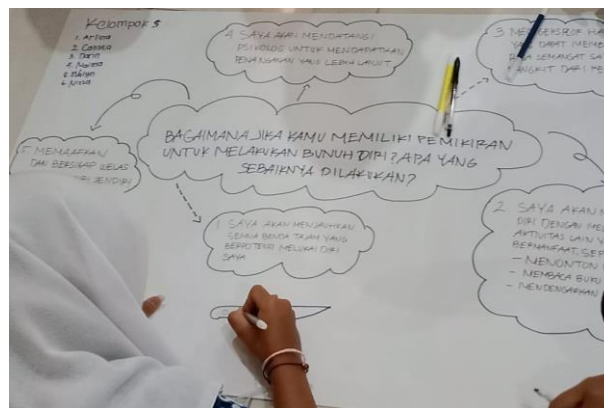 Kelompok 5
1. Artina
2.
3. Daris
4.
5.
6.
4 SAYA AKAN MENDATANGI
PSIKOLOG UNTUK MENDAPATKAN
PENANGANAN YANG LEBIH LANJUT
3 MENGEKSPLOR
YANG DAPAT
RASA SEMANGAT
BANGKIT DARI
BAGAIMANA JIKA KAMU MEMILIKI PEMIKIRAN
UNTUK MELAKUKAN BUNUH DIRI? APA YANG
SEBAIKNYA DILAKUKAN?
5 MEMAAFKAN
DAN BERSIKAP WELAS
DIRI SENDIRI
1 SAYA AKAN MENJAUHKAN
SEMUA BENDA TAJAM YANG
BERPOTENSI MELUKAI DIRI
SAYA
2 SAYA AKAN
DIRI DENGAN
AKTIVITAS LAIN
BERMANFAAT,
- MENONTON
- MEMBACA BUKU
- MENDENGARKAN